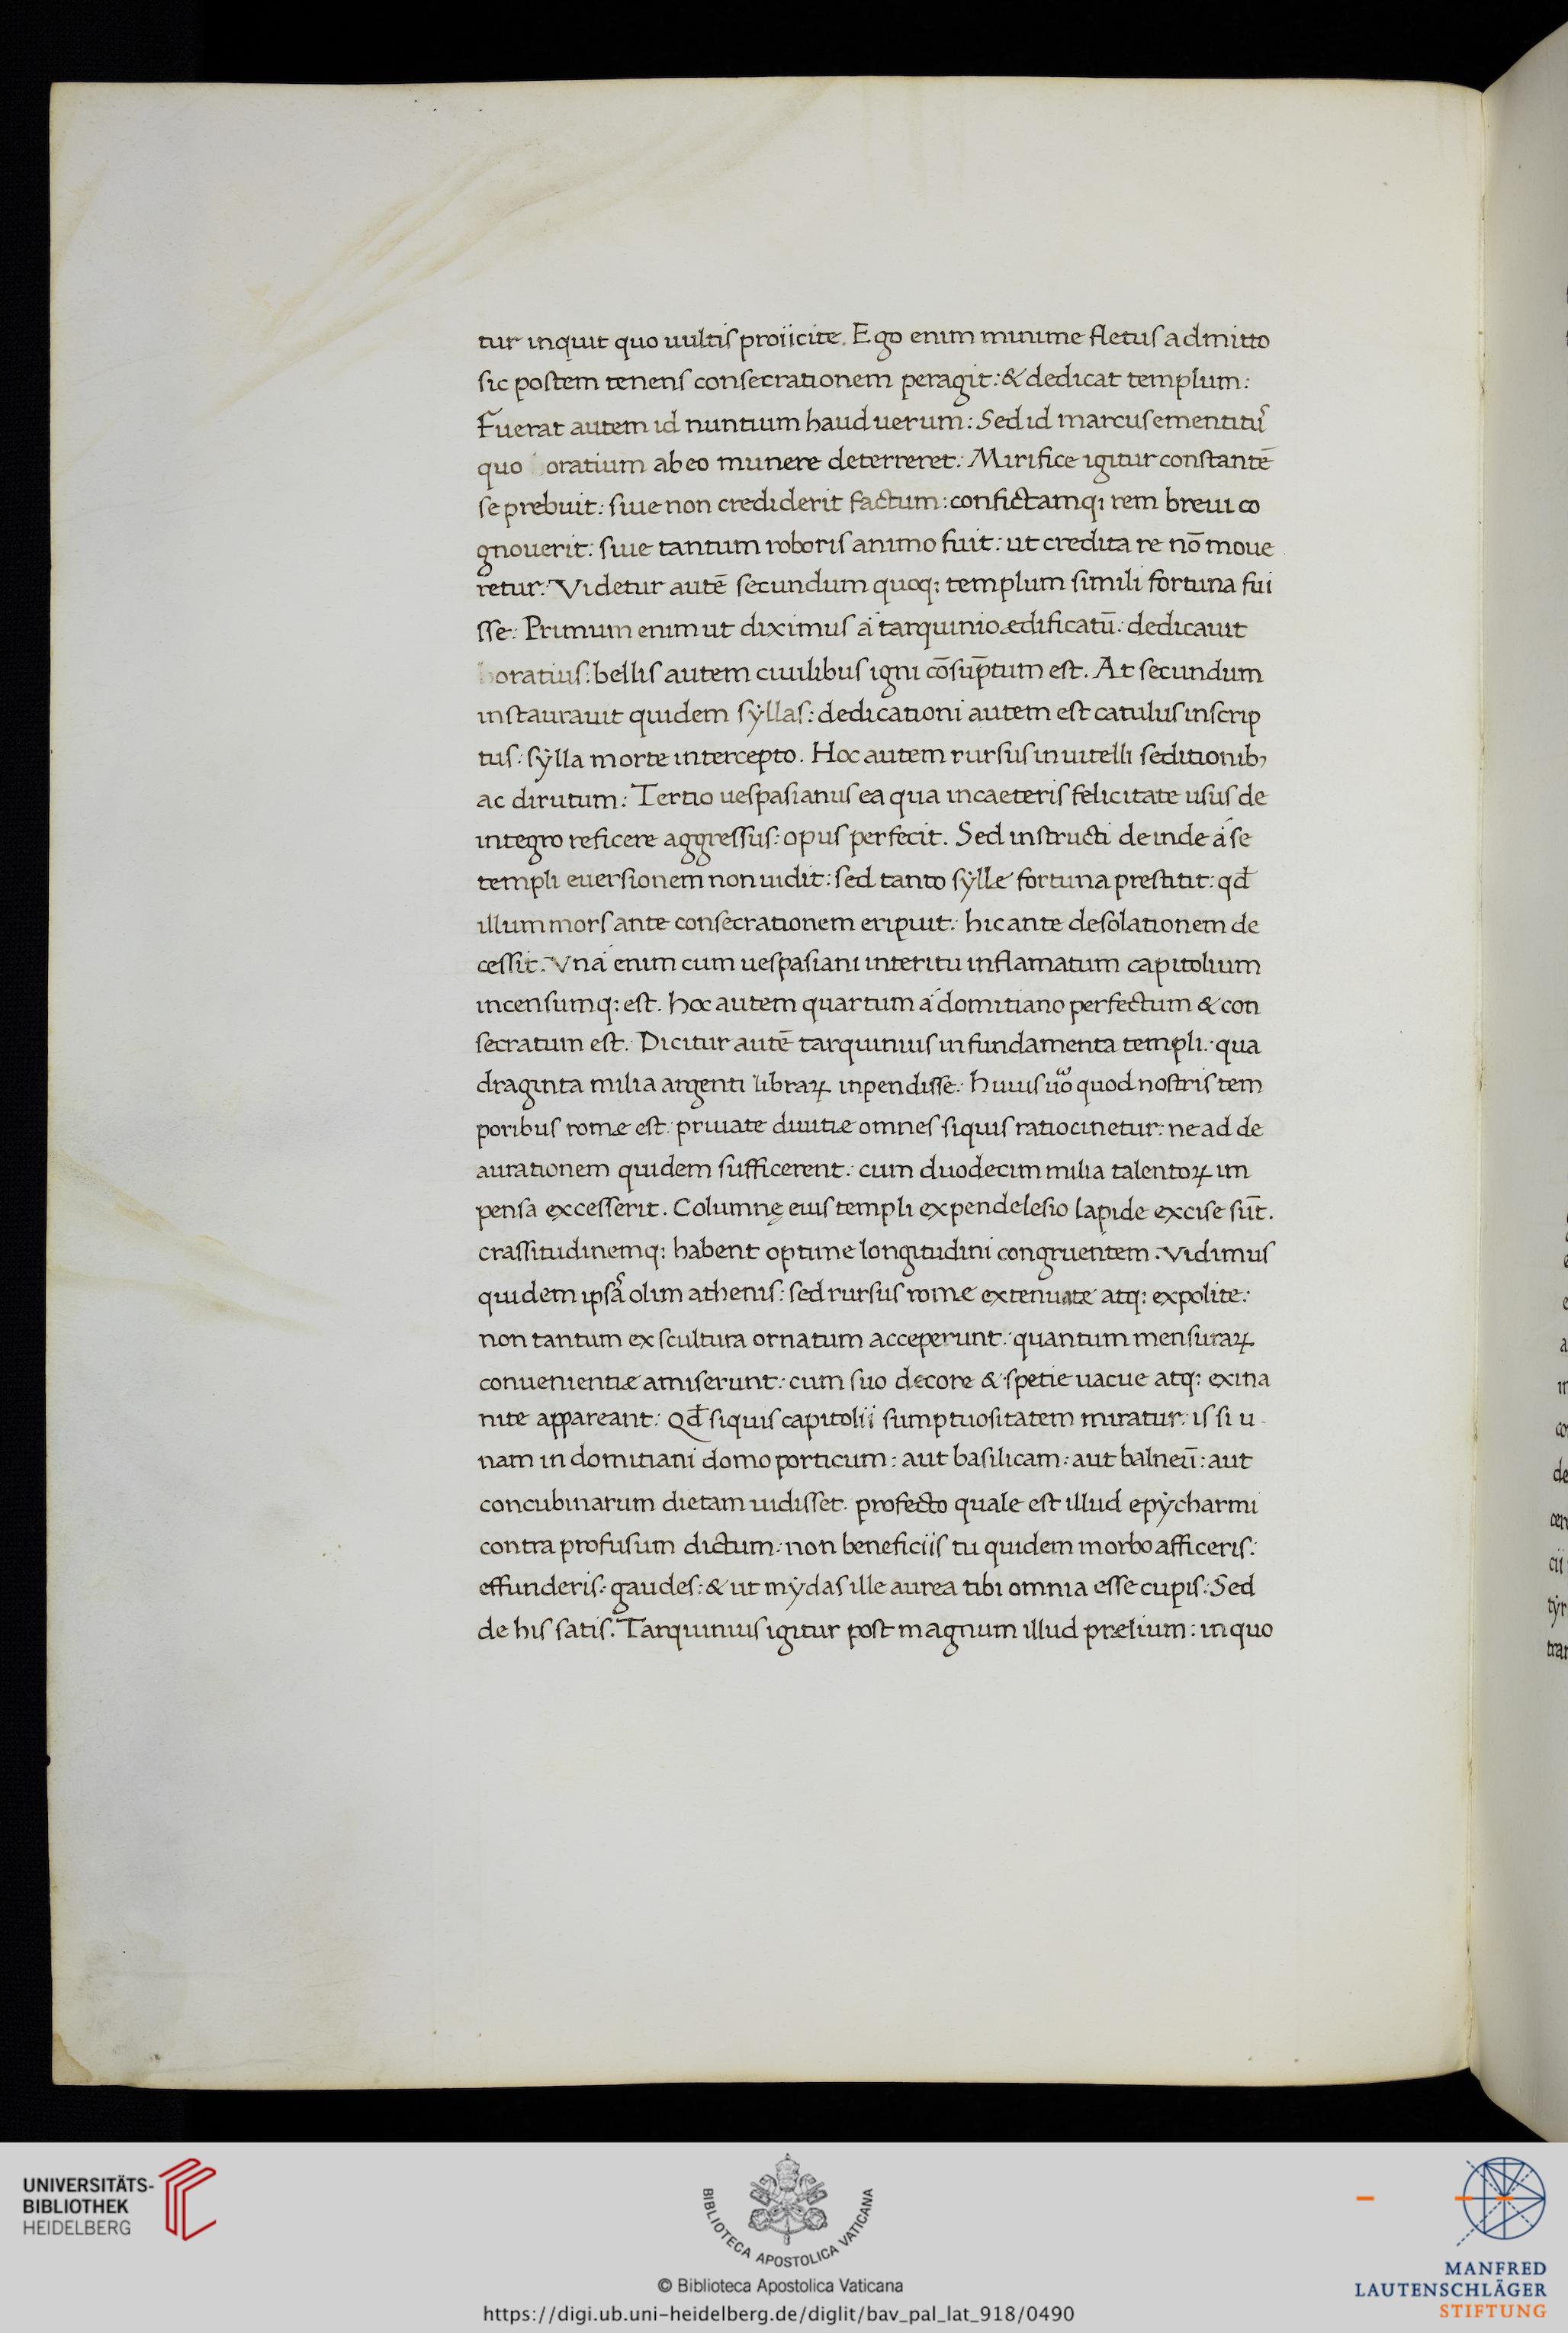 tur inquit quo uultis proiicite. Ego enim minime fletus admitto
sic postem tenens consecrationem peragit: & dedicat templum:
Fuerat autem id nuntium haud uerum: Sed id marcus ementitur̃
quo horatium ab eo munere deterreret: Mirifice igitur constantē
se prebuit: siue non crediderit factum: confictamq; rem breui co
gnouerit: siue tantum roboris animo fuit: ut credita re nō moue
retur: Videtur autē secundum quoq; templum simili fortuna fui
sse: Primum enim ut diximus á tarquinio ædificatū: dedicauit
horatius: bellis autem ciuilibus igni cōsup̄tum est. At secundum
instaurauit quidem sẏllas: dedicationi autem est catulus inscrip
tus: sẏlla morte intercepto. Hoc autem rursus in uitelli seditionib,
ac dirutum: Tertio uespasianus ea qua in caeteris felicitate usus de
integro reficere aggressus: opus perfecit. Sed instructi deinde á se
templi euersionem non uidit: sed tanto sẏllę fortuna prestitit: qđ
illum mors ante consecrationem eripuit: hic ante desolationem de
cessit. Vná enim cum uespasiani interitu inflamatum capitolium
incensumq; est. hoc autem quartum á domitiano perfectum & con
secratum est. Dicitur autē tarquinius in fundamenta templi: qua
draginta milia argenti libraꝝ inpendisse: huius uo quod nostris tem
poribus romæ est: priuate diuitiæ omnes siquis ratiocinetur: ne ad de
aurationem quidem sufficerent: cum duodecim milia talentoꝝ im
pensa excesserit. Columnę eius templi ex pendelesio lapide excise sūt.
crassitudinemq; habent optime longitudini congruentem. Vidimus
quidem ipsã olim athenis: sed rursus romæ extenuate atq; expolite:
non tantum ex scultura ornatum acceperunt: quantum mensuraꝝ
conuenientiæ amiserunt: cum suo decore & spetie uacue atq; exina
nite appareant: Qđ siquis capitolii sumptuositatem miratur: is si u
nam in domitiani domo porticum: aut basilicam: aut balneū: aut
concubinarum dietam uidisset. profecto quale est illud epẏcharmi
contra profusum dictum: non beneficiis tu quidem morbo afficeris:
effunderis: gaudes: & ut mẏdas ille aurea tibi omnia esse cupis: Sed
de his satis. Tarquinius igitur post magnum illud prælium: in quo
UNIVERSITÄTS-
BIBLIOTHEK
HEIDELBERG
BIBLIOTECA APOSTOLICA VATICANA
© Biblioteca Apostolica Vaticana
https://digi.ub.uni-heidelberg.de/diglit/bav_pal_lat_918/0490
MANFRED
LAUTENSCHLÄGER
STIFTUNG